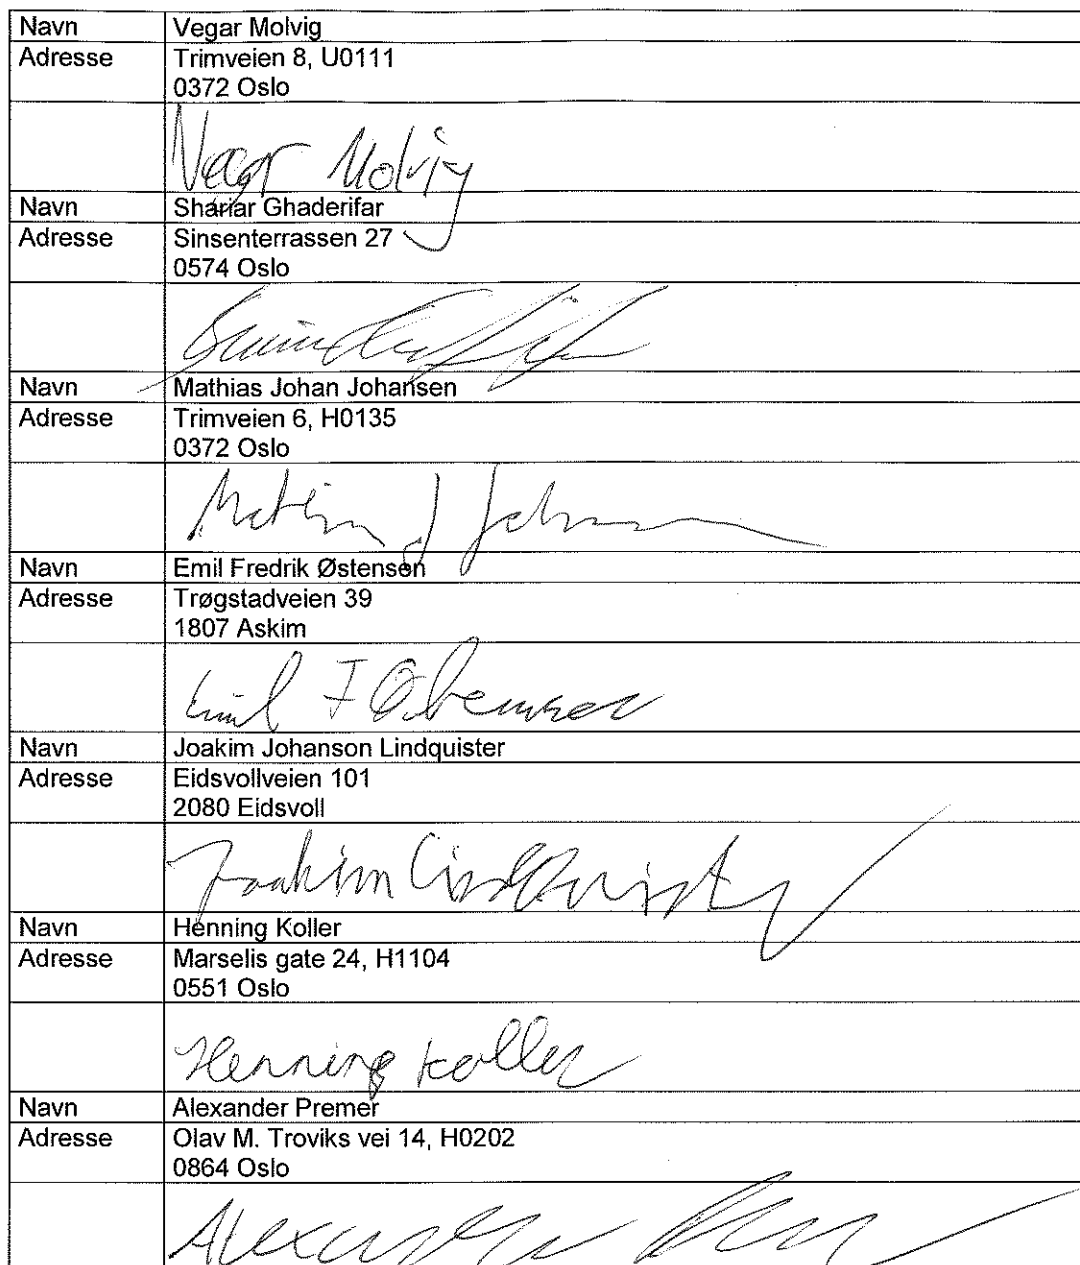 Navn Vegar Molvig
Adresse Trimveien 8, U0111
0372 Oslo
Vegar Molvig
Navn Shariar Ghaderifar
Adresse Sinsenterrassen 27
0574 Oslo
Navn Mathias Johan Johansen
Adresse Trimveien 6, H0135
0372 Oslo
Navn Emil Fredrik Østensen
Adresse Trøgstadveien 39
1807 Askim
Emil F
Navn Joakim Johanson Lindquister
Adresse Eidsvollveien 101
2080 Eidsvoll
Joakim Lindquister
Navn Henning Koller
Adresse Marselis gate 24, H1104
0551 Oslo
Henning Koller
Navn Alexander Premer
Adresse Olav M. Troviks vei 14, H0202
0864 Oslo
Alexander